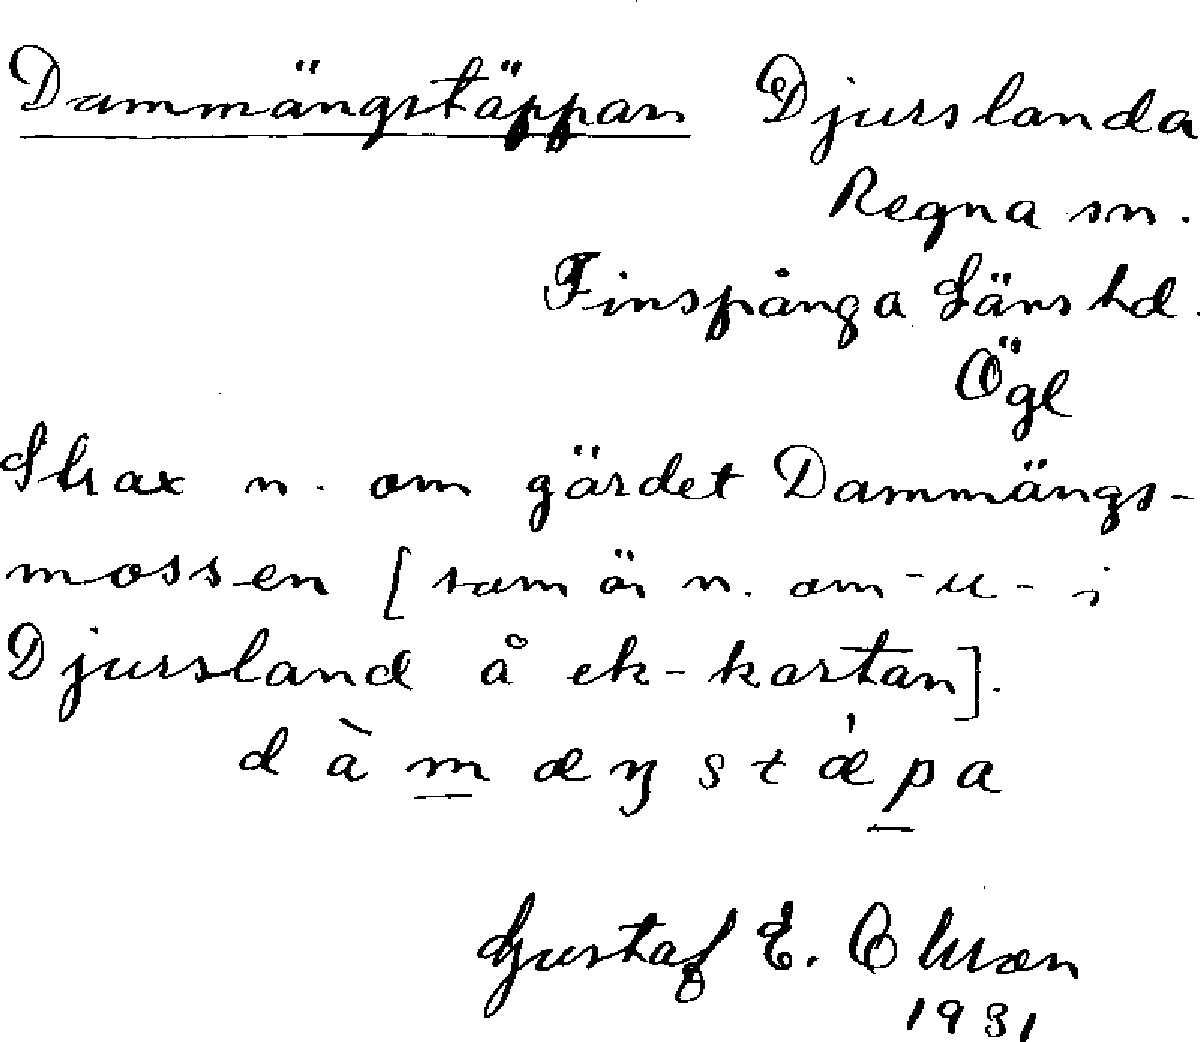 Dammängstäppan Djurslanda
Regna sn.
Finspånga Läns hd.
Ögl
Strax n. om gärdet Dammängs-
mossen [som är n. om -u- i
Djursland å ek-kartan].
dàmæŋstǽpa
Gustaf E. Olsson
1931